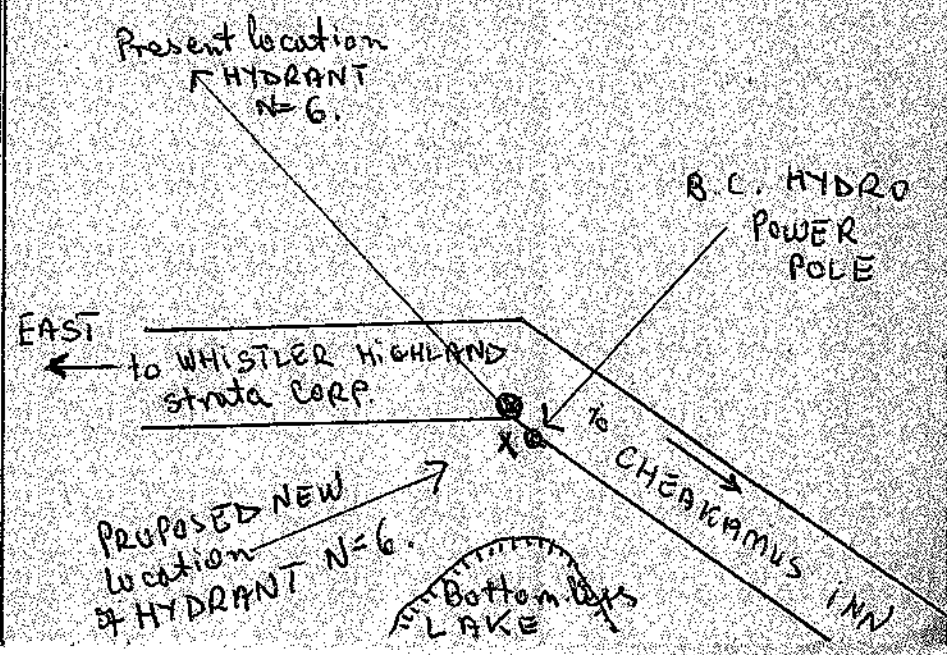 Present location
HYDRANT
N= 6.
B.C. HYDRO
POWER
POLE
EAST
to WHISTLER HIGHLAND
strata CORP.
X
to CHEAKAMUS INN
PROPOSED NEW
location
of HYDRANT N=6.
Bottomless
LAKE